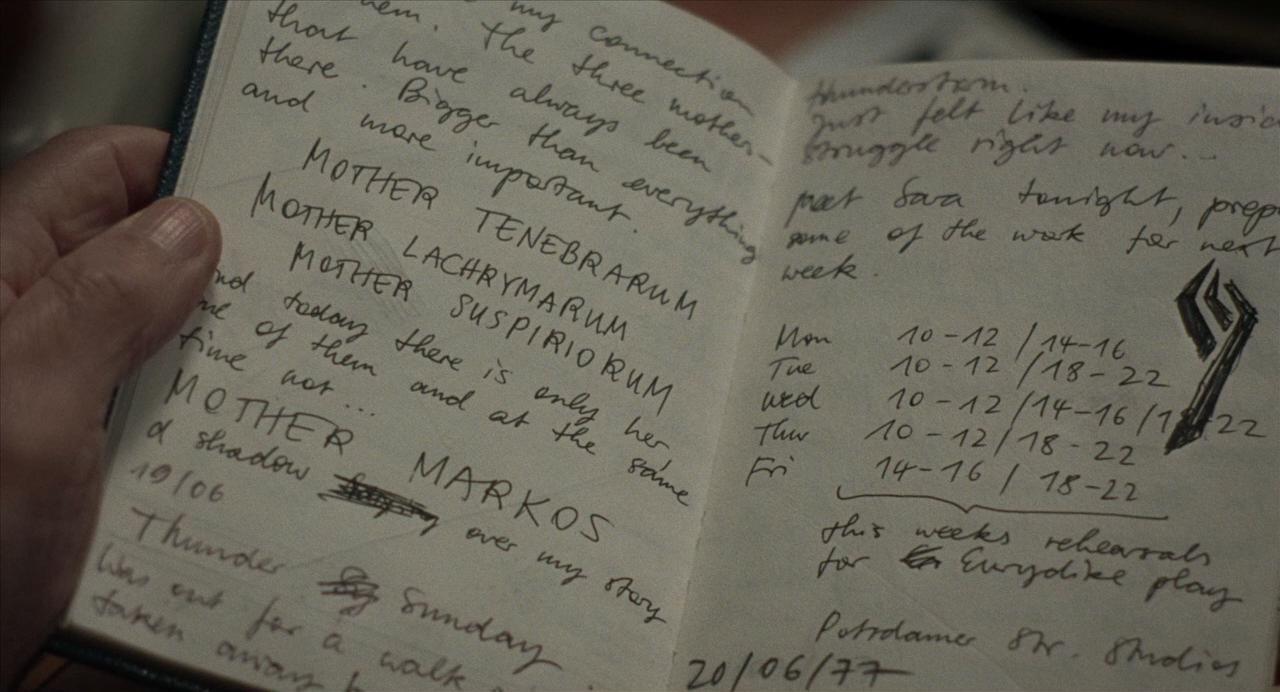 my connection
them. The three mother-
that have always been
there. Bigger than everything
and more important.
MOTHER TENEBRARUM
MOTHER LACHRYMARUM
MOTHER SUSPIRIORUM
and today there is only her
one of them and at the same
time not...
MOTHER MARKOS
a shadow over my story
19/06
Thunder Sunday
Was out for a walk
taken away
thunderstorm.
Just felt like my insid
struggle right now...
meet Sara tonight, prep
some of the work for next
week.
Mon 10-12 / 14-16
Tue 10-12 / 18-22
Wed 10-12 / 14-16 / 18-22
Thur 10-12 / 18-22
Fri 14-16 / 18-22
this weeks rehearsals
for Eurydike play
Potsdamer Str. Studios
20/06/77